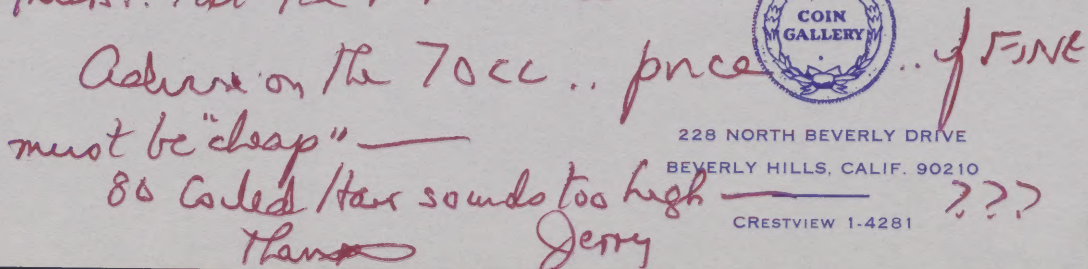 COIN
GALLERY
Advise on the 70cc .. price .. if FINE
must be "cheap" —
228 NORTH BEVERLY DRIVE
BEVERLY HILLS, CALIF. 90210
80 Coiled Hair sounds too high — ???
CRESTVIEW 1-4281
Thanks Jerry